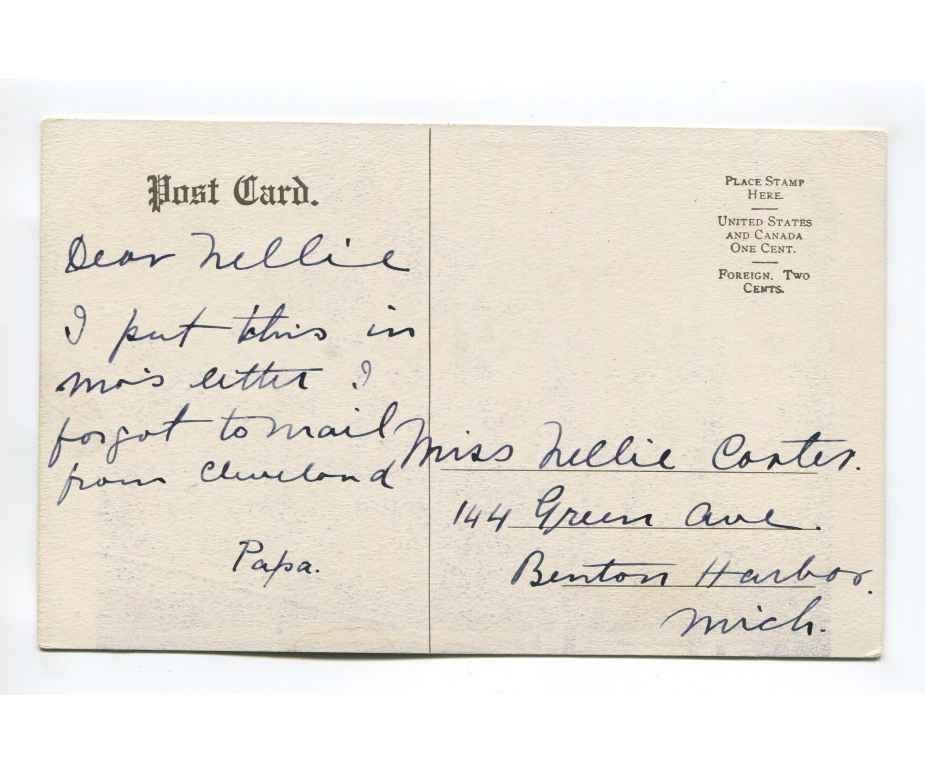 Post Card.
Dear Nellie
I put this in
ma's letter I
forgot to mail
from Cleveland
Papa.
PLACE STAMP
HERE.
UNITED STATES
AND CANADA
ONE CENT.
FOREIGN. TWO
CENTS.
Miss Nellie Carter.
144 Green Ave.
Benton Harbor.
Mich.